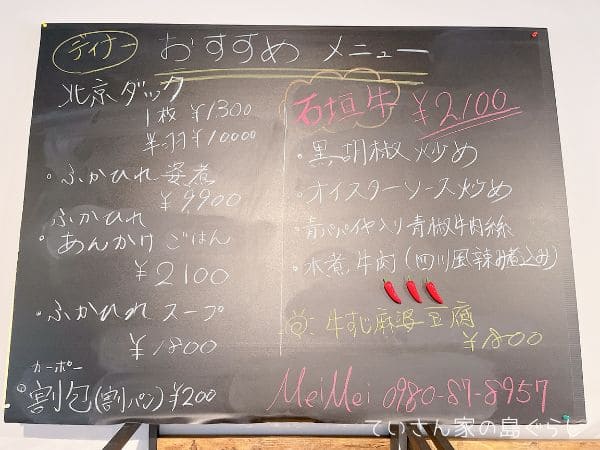 ディナー おすすめ メニュー
北京ダック
1枚 ¥1300
半羽 ¥10000
・ふかひれ 姿煮
¥9900
ふかひれ
・あんかけ ごはん
¥2100
・ふかひれ スープ
¥1800
カーポー
割包(割パン) ¥200
石垣牛 ¥2100
・黒胡椒炒め
・オイスターソース炒め
・青パパイヤ入り青椒牛肉絲
・水煮牛肉(四川風辣み煮込み)
牛すじ麻婆豆腐
¥1800
MeiMei 0980-87-8957
ていさん家の島ぐらし